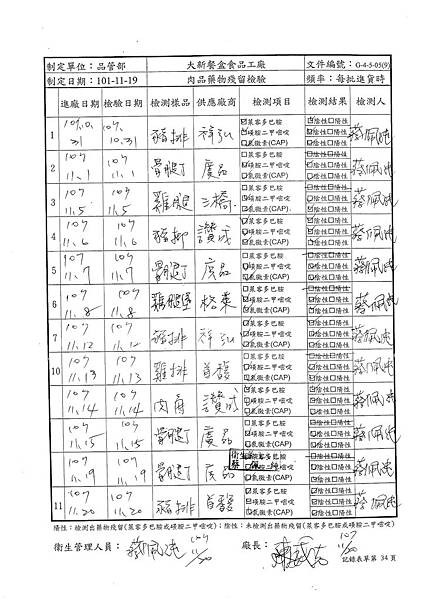 制定單位：品管部 大新餐盒食品工廠 文件編號：G-4-5-05(9)
制定日期：101-11-19 肉品藥物殘留檢驗 頻率：每批進貨時
進廠日期 檢驗日期 檢測樣品 供應廠商 檢測項目 檢測結果 檢測人
1 107.10.31 107.10.31 豬排 祥弘 ☑萊客多巴胺 ☑陰性□陽性 蔡佩
☑磺胺二甲嘧啶 ☑陰性□陽性
□氯黴素(CAP) □陰性□陽性
2 107 11.1 107 11.1 骨腿丁 廣品 □萊客多巴胺 □陰性□陽性 蔡佩
☑磺胺二甲嘧啶 ☑陰性□陽性
☑氯黴素(CAP) ☑陰性□陽性
3 107 11.5 107 11.5 雞腿 三橋 □萊客多巴胺 □陰性□陽性 蔡佩
☑磺胺二甲嘧啶 ☑陰性□陽性
☑氯黴素(CAP) ☑陰性□陽性
4 107 11.6 107 11.6 豬柳 讚成 ☑萊客多巴胺 ☑陰性□陽性 蔡佩
☑磺胺二甲嘧啶 ☑陰性□陽性
□氯黴素(CAP) □陰性□陽性
5 107 11.7 107 11.7 骨腿丁 廣品 □萊客多巴胺 □陰性□陽性 蔡佩
☑磺胺二甲嘧啶 ☑陰性□陽性
☑氯黴素(CAP) ☑陰性□陽性
6 107 11.8 107 11.8 雞腿堡 □萊客多巴胺 □陰性□陽性 蔡佩
☑磺胺二甲嘧啶 ☑陰性□陽性
☑氯黴素(CAP) ☑陰性□陽性
107 11.12 107 11.12 豬排 祥弘 ☑萊客多巴胺 ☑陰性□陽性 蔡佩
☑磺胺二甲嘧啶 ☑陰性□陽性
□氯黴素(CAP) □陰性□陽性
10 107 11.13 107 11.13 雞排 首馥 □萊客多巴胺 □陰性□陽性 蔡佩
☑磺胺二甲嘧啶 ☑陰性□陽性
☑氯黴素(CAP) ☑陰性□陽性
107 11.14 107 11.14 肉角 讚成 ☑萊客多巴胺 ☑陰性□陽性 蔡佩
☑磺胺二甲嘧啶 ☑陰性□陽性
□氯黴素(CAP) □陰性□陽性
107 11.15 107 11.15 骨腿丁 廣品 □萊客多巴胺 □陰性□陽性 蔡佩
☑磺胺二甲嘧啶 ☑陰性□陽性
107 11.19 107 11.19 骨腿丁 廣品 蔡佩
☑磺胺二甲嘧啶 ☑陰性□陽性
☑氯黴素(CAP) ☑陰性□陽性
11 107 11.20 107 11.20 豬排 首馥 ☑萊客多巴胺 ☑陰性□陽性 蔡佩
☑磺胺二甲嘧啶 ☑陰性□陽性
□氯黴素(CAP) □陰性□陽性
陽性：檢測出藥物殘留(萊客多巴胺或磺胺二甲嘧啶)；陰性：未檢測出藥物殘留(萊客多巴胺或磺胺二甲嘧啶)
衛生管理人員：蔡佩 107 11/20 廠長： 107 11/20
記錄表單第 34 頁